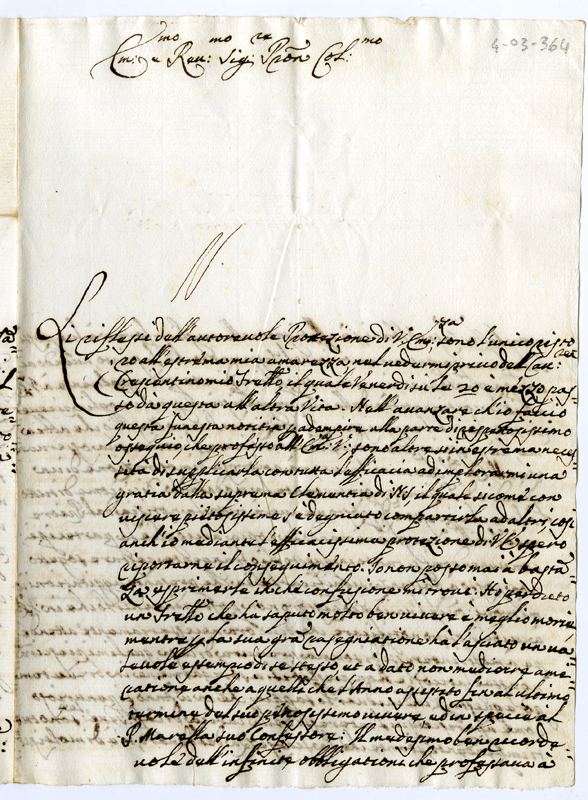 4-03-364
Em:mo e Reu:mo Sig:re Pron Col:mo
Li riflessi dell'autoreuole Protezione di V. Em:za sono l'unico risto
ro all'estrema mia amarezza nel uedermi priuo del Car:
Crescentino mio Fratello, il quale Venerdi su le 20 e mezzo pas
sò da questa all'altra Vita. Nell'auanzare ch'io faccio
questa funesta notitia p adempire alla parte di rispettosissimo
ossequio che professo all' sono altresi in estrema neces
sità di supplicarla con tutta l'efficacia ad implorarmi una
gratia dalla suprema Clementia di NS il quale si come con
uiscere pietosissime s'è degniato compartirla ad altri, cosi
anch'io mediante l'efficacissima protezione di V.E. spero
riportarne il conseguimento. Io non posso mai à basta
za esprimerle in che confusione mi troui. Hò perduto
un Fratello che ha saputo molto ben uiuere e meglio morire
mentre p la sua gran rasegniatione ha lasciato un no
teuole essempio di se stesso, et à dato non mediocre ame
ratione anche a quelli che l'Anno assistito fin al ultimo
termine del suo uiuere ed in specie al
P. Maretta suo Confessore: Il medesimo ben ricorde
uole dell'infinite obbligationi che professaua à